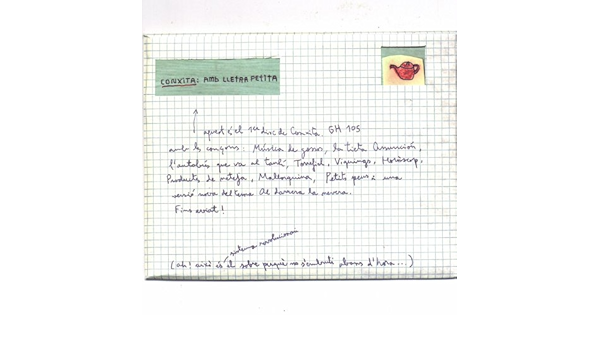 CONXITA: AMB LLETRA PETITA
aquest és el 1er disc de Conxita GH 105
amb les cançons: Música de gossos, la tieta Assumpció,
l'autobús que va al tard, Tonefol, Viquings, Horòscop,
Productes de neteja, Mallorquina, Petits peus i una
versió nova del tema Al darrera la nevera.
Fins aviat!
sistema revolucionari
(ah! així és el sobre perquè no s'embruti abans d'hora...)